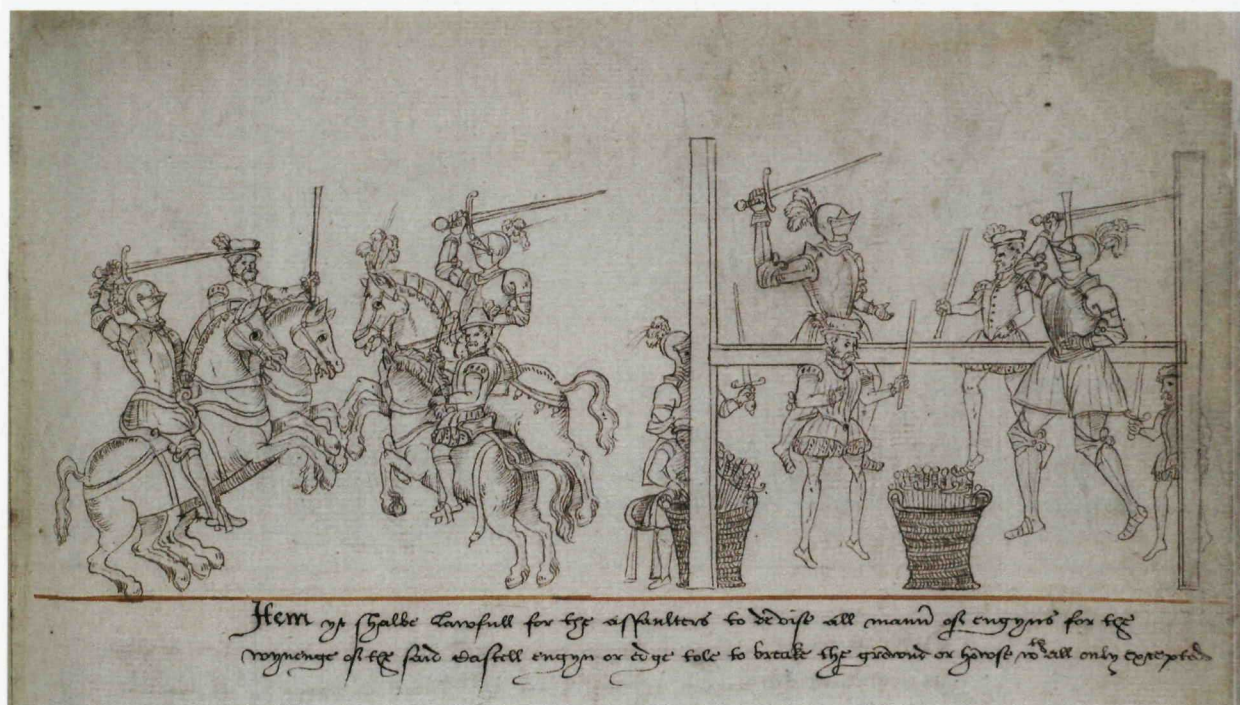 Item yt shalbe lawfull for the assaulters to devise all manner of engyns for the
wynenge of the said Castell engyn or edge tole to breake the grownd or howse wthall only excepted